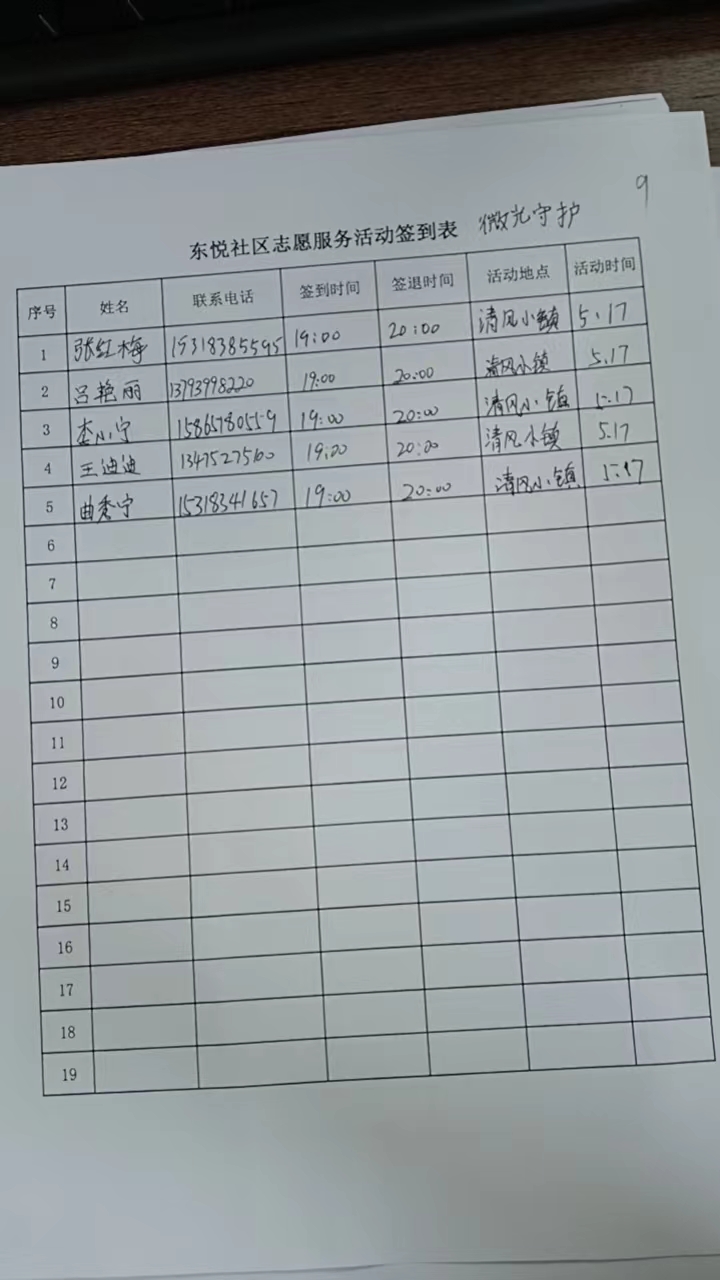 9
东悦社区志愿服务活动签到表 微光守护
序号 姓名 联系电话 签到时间 签退时间 活动地点 活动时间
1 张红梅 15318385595 19:00 20:00 清风小镇 5.17
2 吕艳丽 13793998220 19:00 20:00 清风小镇 5.17
3 李小宁 15865780559 19:00 20:00 清风小镇 5.17
4 王迪迪 13475275160 19:00 20:00 清风小镇 5.17
5 曲秀宁 15318341657 19:00 20:00 清风小镇 5.17
6
7
8
9
10
11
12
13
14
15
16
17
18
19